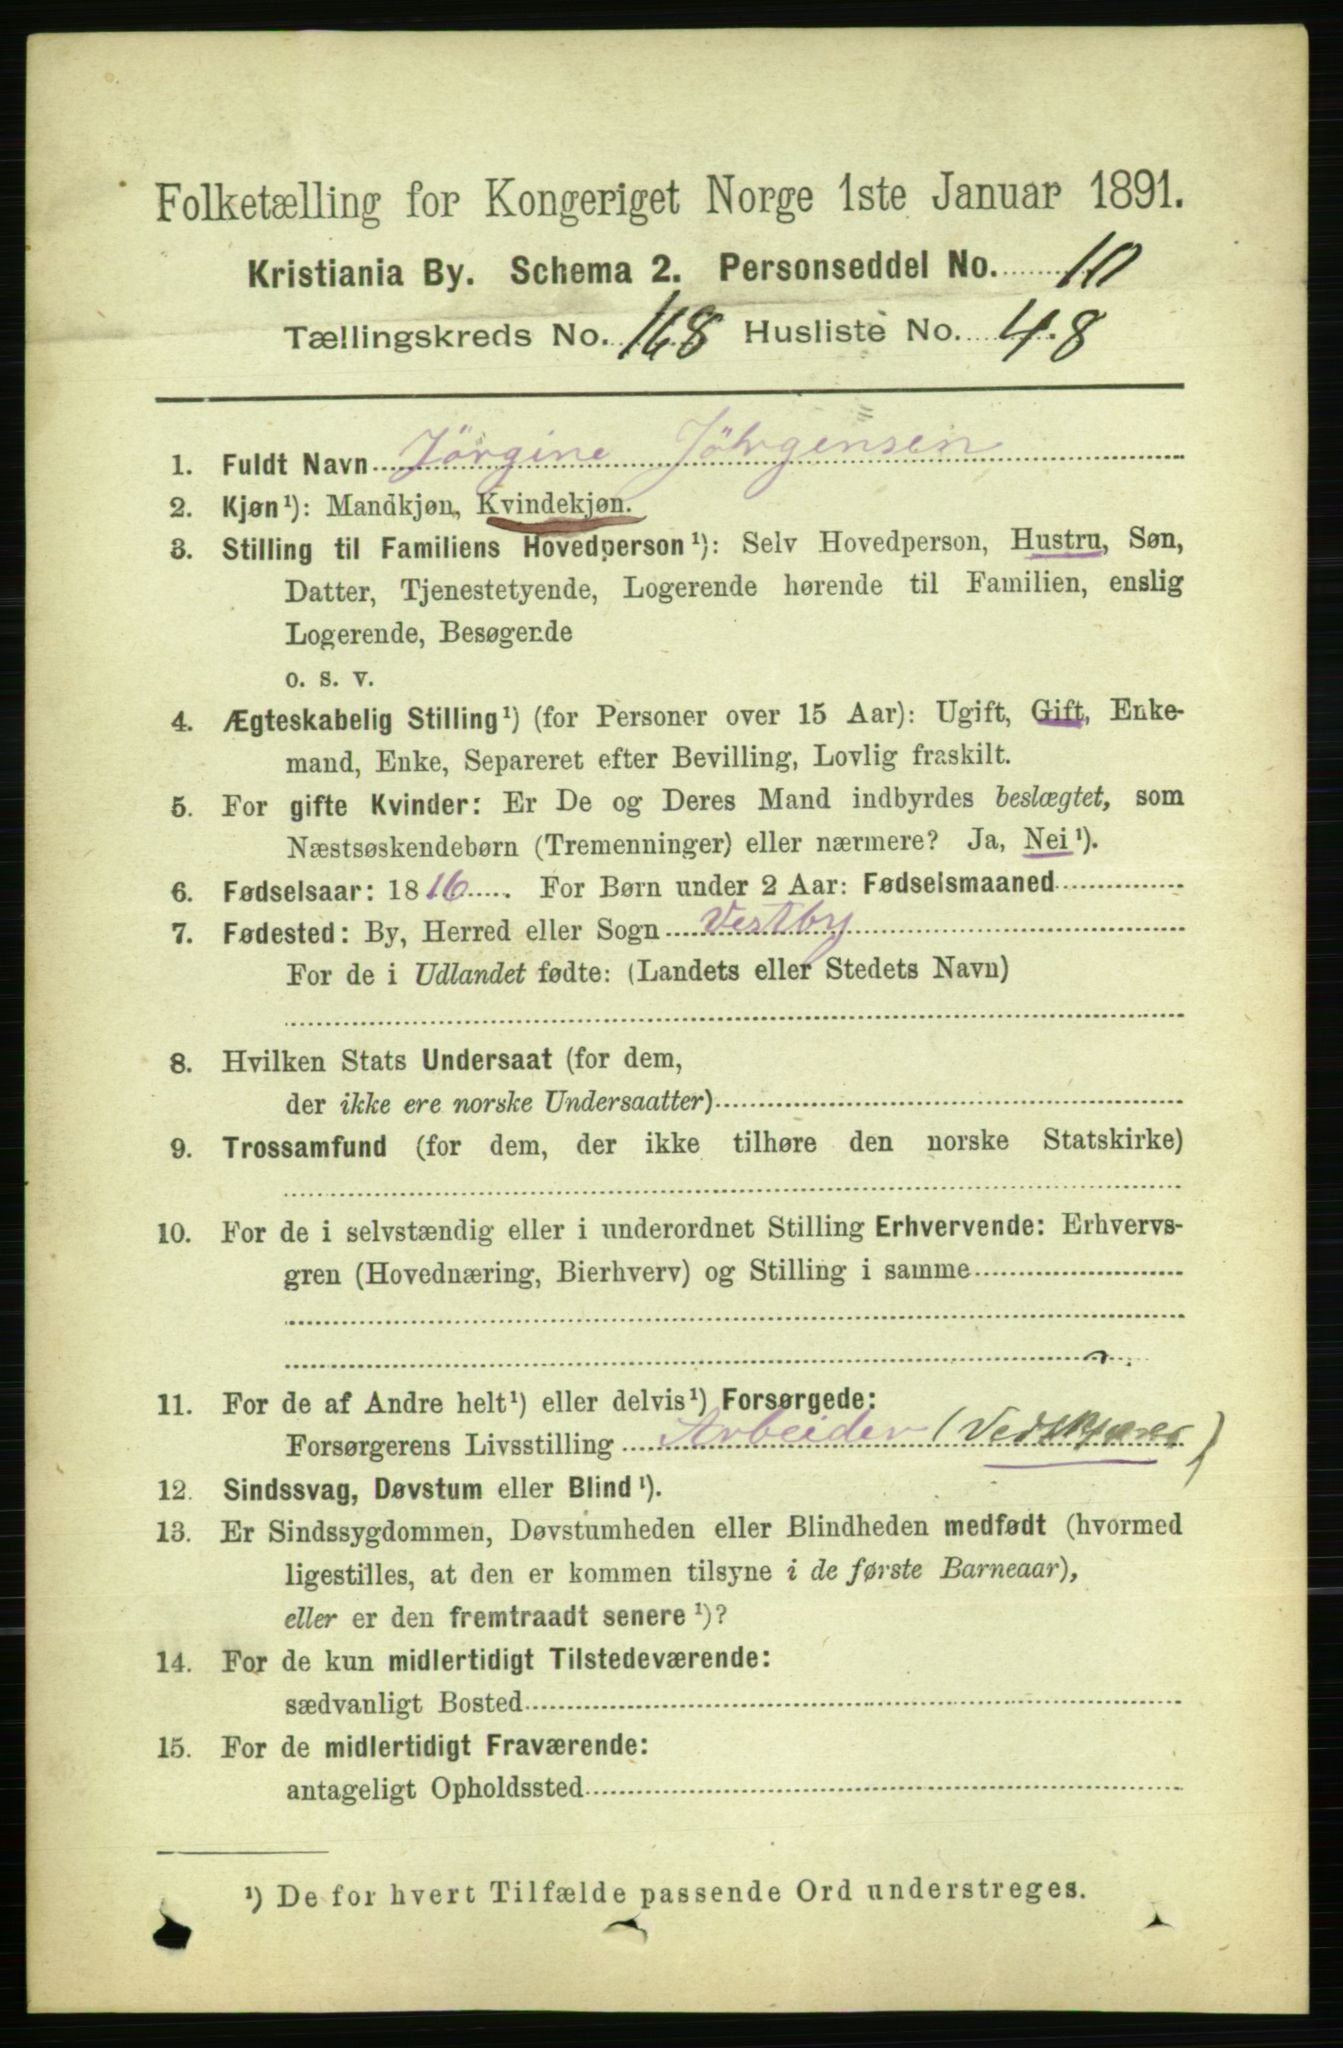 Folketælling for Kongeriget Norge 1ste Januar 1891.
Kristiania By. Schema 2. Personseddel No. 10
Tællingskreds No. 168 Husliste No. 48
1. Fuldt Navn Jörgine Jöhrgensen
2. Kjøn¹): Mandkjøn, Kvindekjøn.
3. Stilling til Familiens Hovedperson¹): Selv Hovedperson, Hustru, Søn,
Datter, Tjenestetyende, Logerende hørende til Familien, enslig
Logerende, Besøgende
o. s. v.
4. Ægteskabelig Stilling¹) (for Personer over 15 Aar): Ugift, Gift, Enke-
mand, Enke, Separeret efter Bevilling, Lovlig fraskilt.
5. For gifte Kvinder: Er De og Deres Mand indbyrdes beslægtet, som
Næstsøskendebørn (Tremenninger) eller nærmere? Ja, Nei¹).
6. Fødselsaar: 1816 For Børn under 2 Aar: Fødselsmaaned
7. Fødested: By, Herred eller Sogn Vestby
For de i Udlandet fødte: (Landets eller Stedets Navn)
8. Hvilken Stats Undersaat (for dem,
der ikke ere norske Undersaatter)
9. Trossamfund (for dem, der ikke tilhøre den norske Statskirke)
10. For de i selvstændig eller i underordnet Stilling Erhvervende: Erhvervs-
gren (Hovednæring, Bierhverv) og Stilling i samme
11. For de af Andre helt¹) eller delvis¹) Forsørgede:
Forsørgerens Livsstilling Arbeider (Vedskjærer)
12. Sindssvag, Døvstum eller Blind¹).
13. Er Sindssygdommen, Døvstumheden eller Blindheden medfødt (hvormed
ligestilles, at den er kommen tilsyne i de første Barneaar),
eller er den fremtraadt senere¹)?
14. For de kun midlertidigt Tilstedeværende:
sædvanligt Bosted
15. For de midlertidigt Fraværende:
antageligt Opholdssted
¹) De for hvert Tilfælde passende Ord understreges.